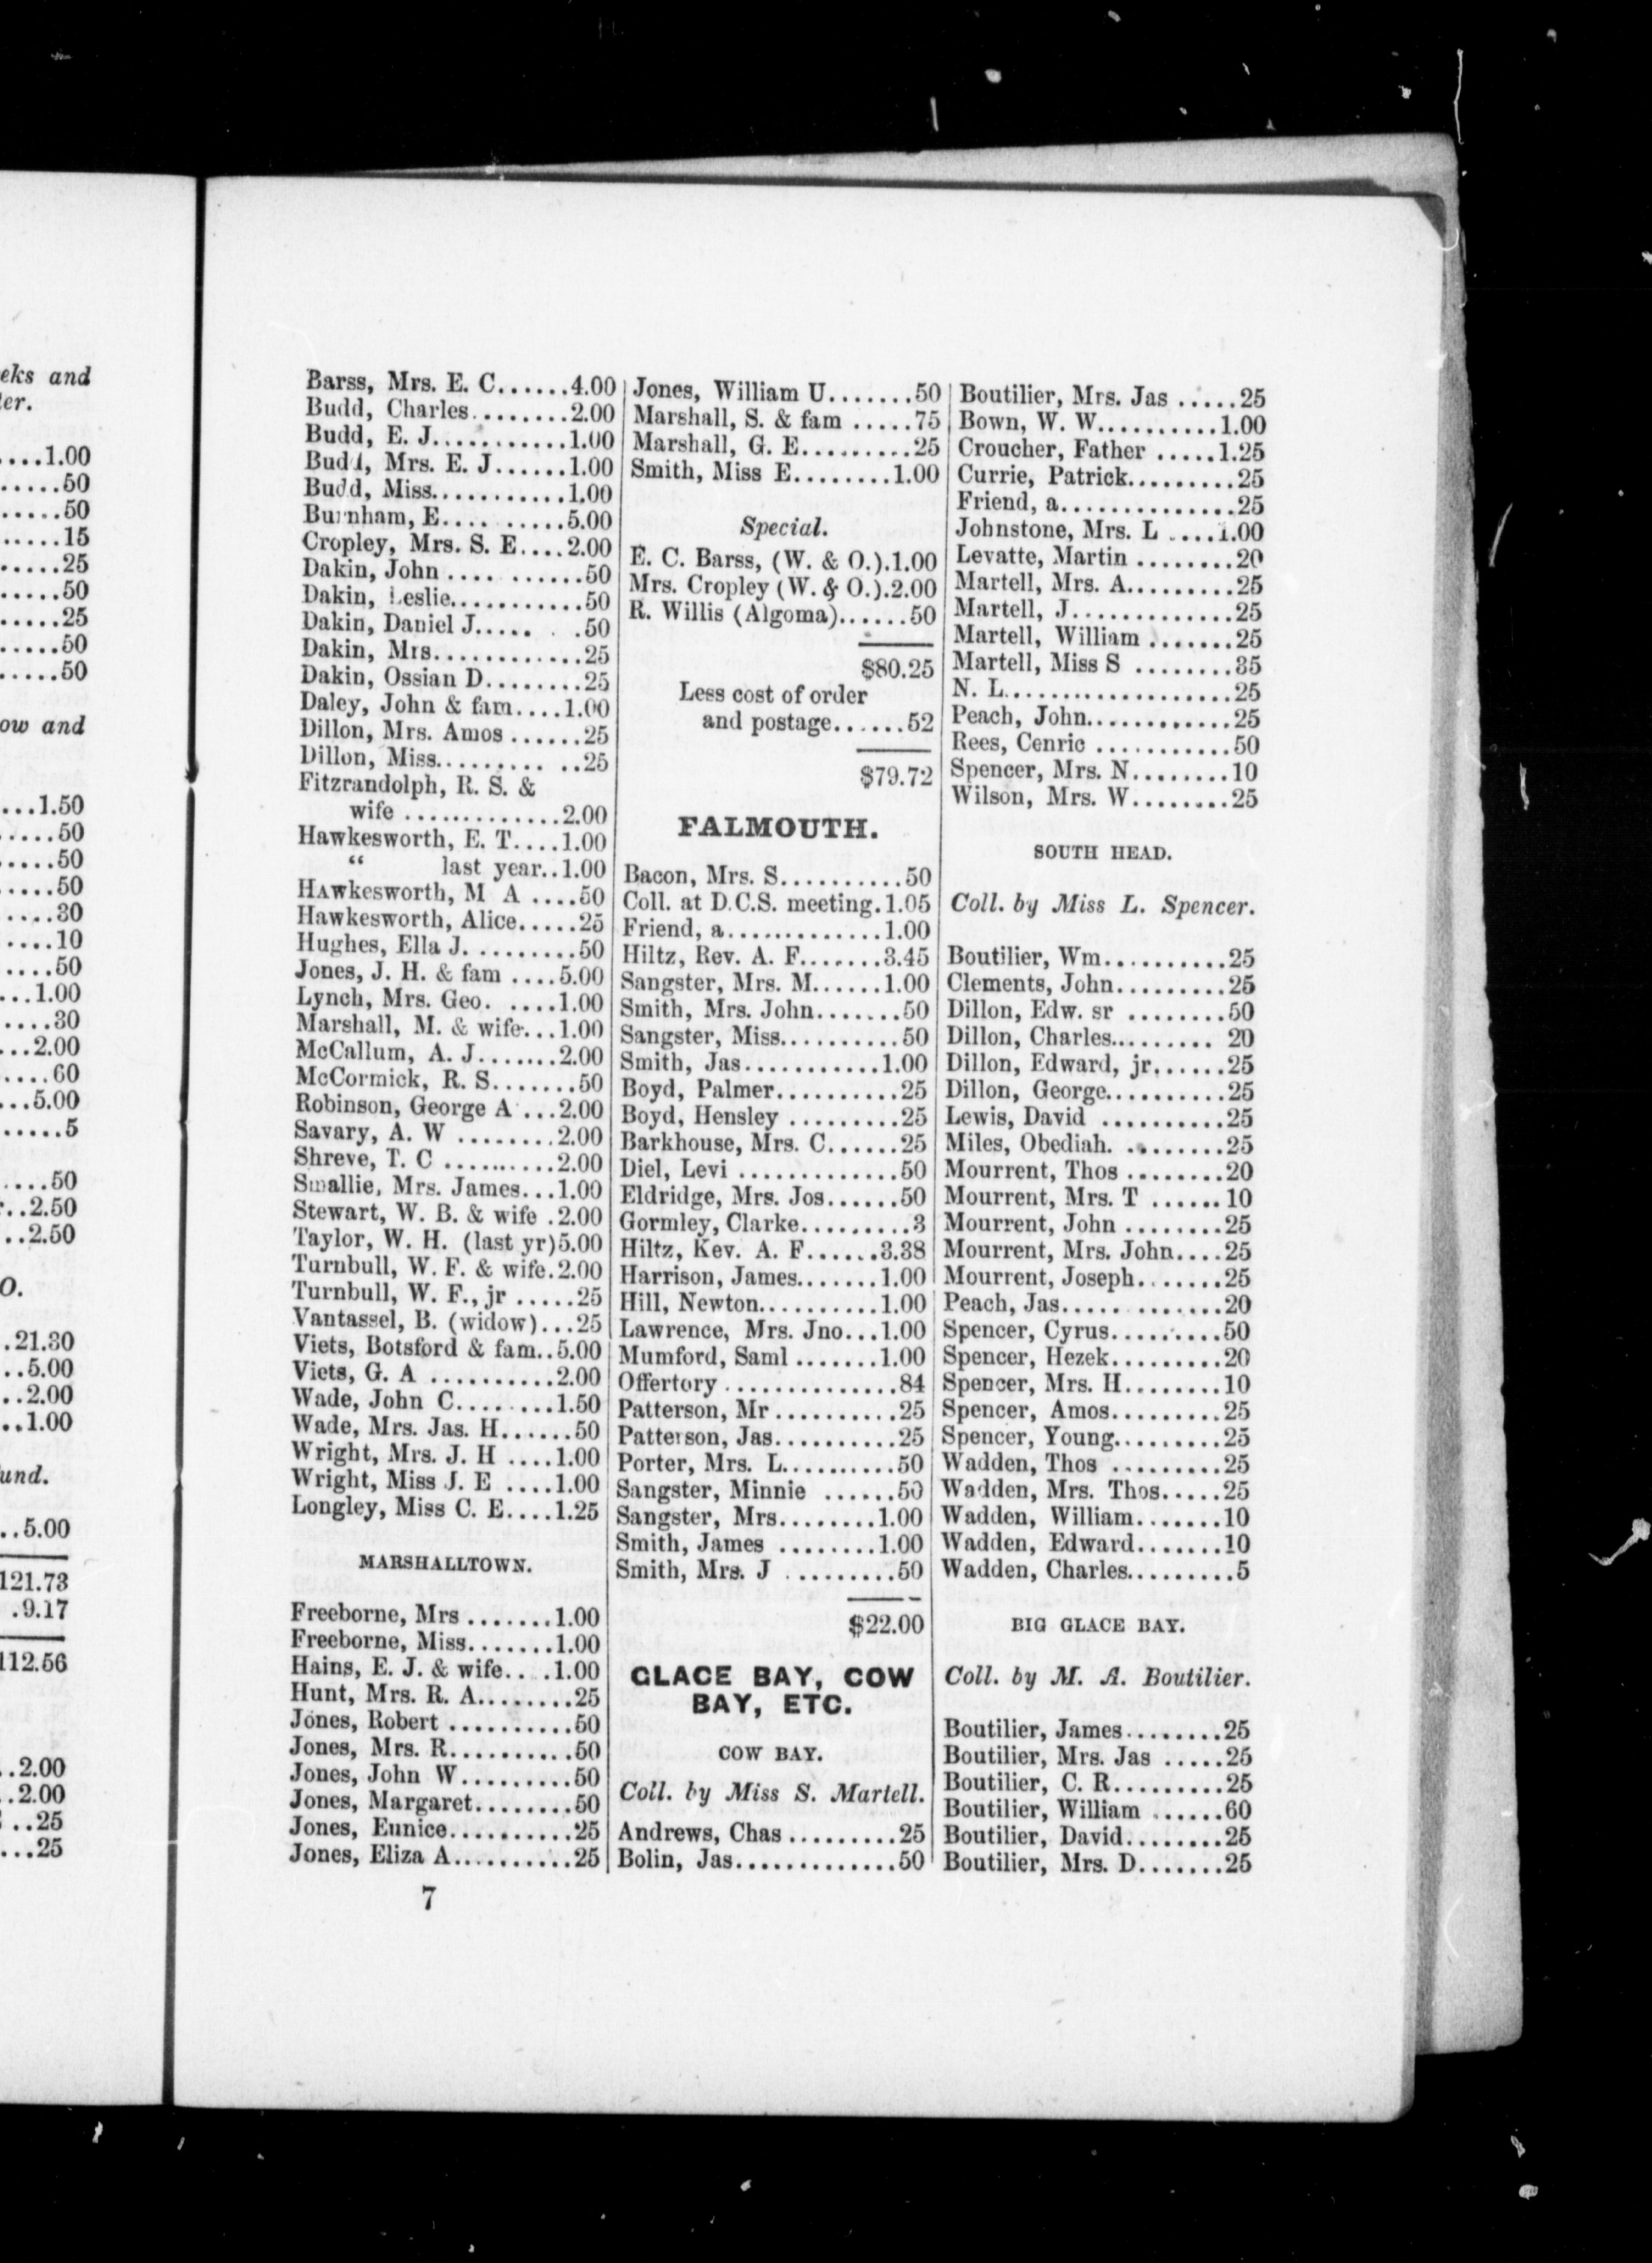 eks and
er.
....1.00
.....50
.....50
.....15
.....25
.....50
.....25
.....50
.....50
ow and
...1.50
.....50
.....50
.....50
....30
....10
....50
...1.00
....30
...2.00
....60
...5.00
.....5
....50
..2.50
..2.50
O.
..21.30
..5.00
..2.00
...1.00
und.
..5.00
121.73
.9.17
112.56
..2.00
..2.00
..25
...25
Barss, Mrs. E. C......4.00
Budd, Charles........2.00
Budd, E. J...........1.00
Budd, Mrs. E. J......1.00
Budd, Miss...........1.00
Burnham, E..........5.00
Cropley, Mrs. S. E....2.00
Dakin, John ..........50
Dakin, Leslie...........50
Dakin, Daniel J..... . .50
Dakin, Mrs............25
Dakin, Ossian D........25
Daley, John & fam....1.00
Dillon, Mrs. Amos ......25
Dillon, Miss......... ..25
Fitzrandolph, R. S. &
wife .............2.00
Hawkesworth, E. T....1.00
“ last year..1.00
HAwkesworth, M A ....50
Hawkesworth, Alice.....25
Hughes, Ella J.........50
Jones, J. H. & fam ....5.00
Lynch, Mrs. Geo. .....1.00
Marshall, M. & wife...1.00
McCallum, A. J.......2.00
McCormick, R. S.......50
Robinson, George A ...2.00
Savary, A. W ........2.00
Shreve, T. C ..........2.00
Smallie, Mrs. James...1.00
Stewart, W. B. & wife .2.00
Taylor, W. H. (last yr)5.00
Turnbull, W. F. & wife.2.00
Turnbull, W. F., jr .....25
Vantassel, B. (widow)...25
Viets, Botsford & fam..5.00
Viets, G. A ..........2.00
Wade, John C........1.50
Wade, Mrs. Jas. H......50
Wright, Mrs. J. H ....1.00
Wright, Miss J. E ....1.00
Longley, Miss C. E....1.25
MARSHALLTOWN.
Freeborne, Mrs .......1.00
Freeborne, Miss.......1.00
Hains, E. J. & wife....1.00
Hunt, Mrs. R. A........25
Jones, Robert ..........50
Jones, Mrs. R..........50
Jones, John W.........50
Jones, Margaret........50
Jones, Eunice..........25
Jones, Eliza A..........25
7
Jones, William U.......50
Marshall, S. & fam .....75
Marshall, G. E.........25
Smith, Miss E........1.00
Special.
E. C. Barss, (W. & O.).1.00
Mrs. Cropley (W. & O.).2.00
R. Willis (Algoma)......50
$80.25
Less cost of order
and postage......52
$79.72
FALMOUTH.
Bacon, Mrs. S..........50
Coll. at D.C.S. meeting.1.05
Friend, a.............1.00
Hiltz, Rev. A. F.......3.45
Sangster, Mrs. M......1.00
Smith, Mrs. John.......50
Sangster, Miss..........50
Smith, Jas...........1.00
Boyd, Palmer..........25
Boyd, Hensley .........25
Barkhouse, Mrs. C......25
Diel, Levi .............50
Eldridge, Mrs. Jos......50
Gormley, Clarke.........3
Hiltz, Rev. A. F......3.38
Harrison, James.......1.00
Hill, Newton..........1.00
Lawrence, Mrs. Jno...1.00
Mumford, Saml .......1.00
Offertory ..............84
Patterson, Mr ..........25
Patterson, Jas..........25
Porter, Mrs. L..........50
Sangster, Minnie ......50
Sangster, Mrs........1.00
Smith, James ........1.00
Smith, Mrs. J .........50
$22.00
GLACE BAY, COW
BAY, ETC.
COW BAY.
Coll. by Miss S. Martell.
Andrews, Chas .........25
Bolin, Jas.............50
Boutilier, Mrs. Jas .....25
Bown, W. W..........1.00
Croucher, Father .....1.25
Currie, Patrick.........25
Friend, a..............25
Johnstone, Mrs. L ....1.00
Levatte, Martin ........20
Martell, Mrs. A.........25
Martell, J.............25
Martell, William .......25
Martell, Miss S ........35
N. L...................25
Peach, John............25
Rees, Cenric ...........50
Spencer, Mrs. N........10
Wilson, Mrs. W........25
SOUTH HEAD.
Coll. by Miss L. Spencer.
Boutilier, Wm..........25
Clements, John.........25
Dillon, Edw. sr ........50
Dillon, Charles......... 20
Dillon, Edward, jr......25
Dillon, George..........25
Lewis, David ..........25
Miles, Obediah. ........25
Mourrent, Thos ........20
Mourrent, Mrs. T ......10
Mourrent, John ........25
Mourrent, Mrs. John....25
Mourrent, Joseph.......25
Peach, Jas..... .......20
Spencer, Cyrus.........50
Spencer, Hezek.........20
Spencer, Mrs. H........10
Spencer, Amos.........25
Spencer, Young.........25
Wadden, Thos .........25
Wadden, Mrs. Thos.....25
Wadden, William.......10
Wadden, Edward.......10
Wadden, Charles.........5
BIG GLACE BAY.
Coll. by M. A. Boutilier.
Boutilier, James........25
Boutilier, Mrs. Jas .....25
Boutilier, C. R.........25
Boutilier, William ......60
Boutilier, David........25
Boutilier, Mrs. D.......25